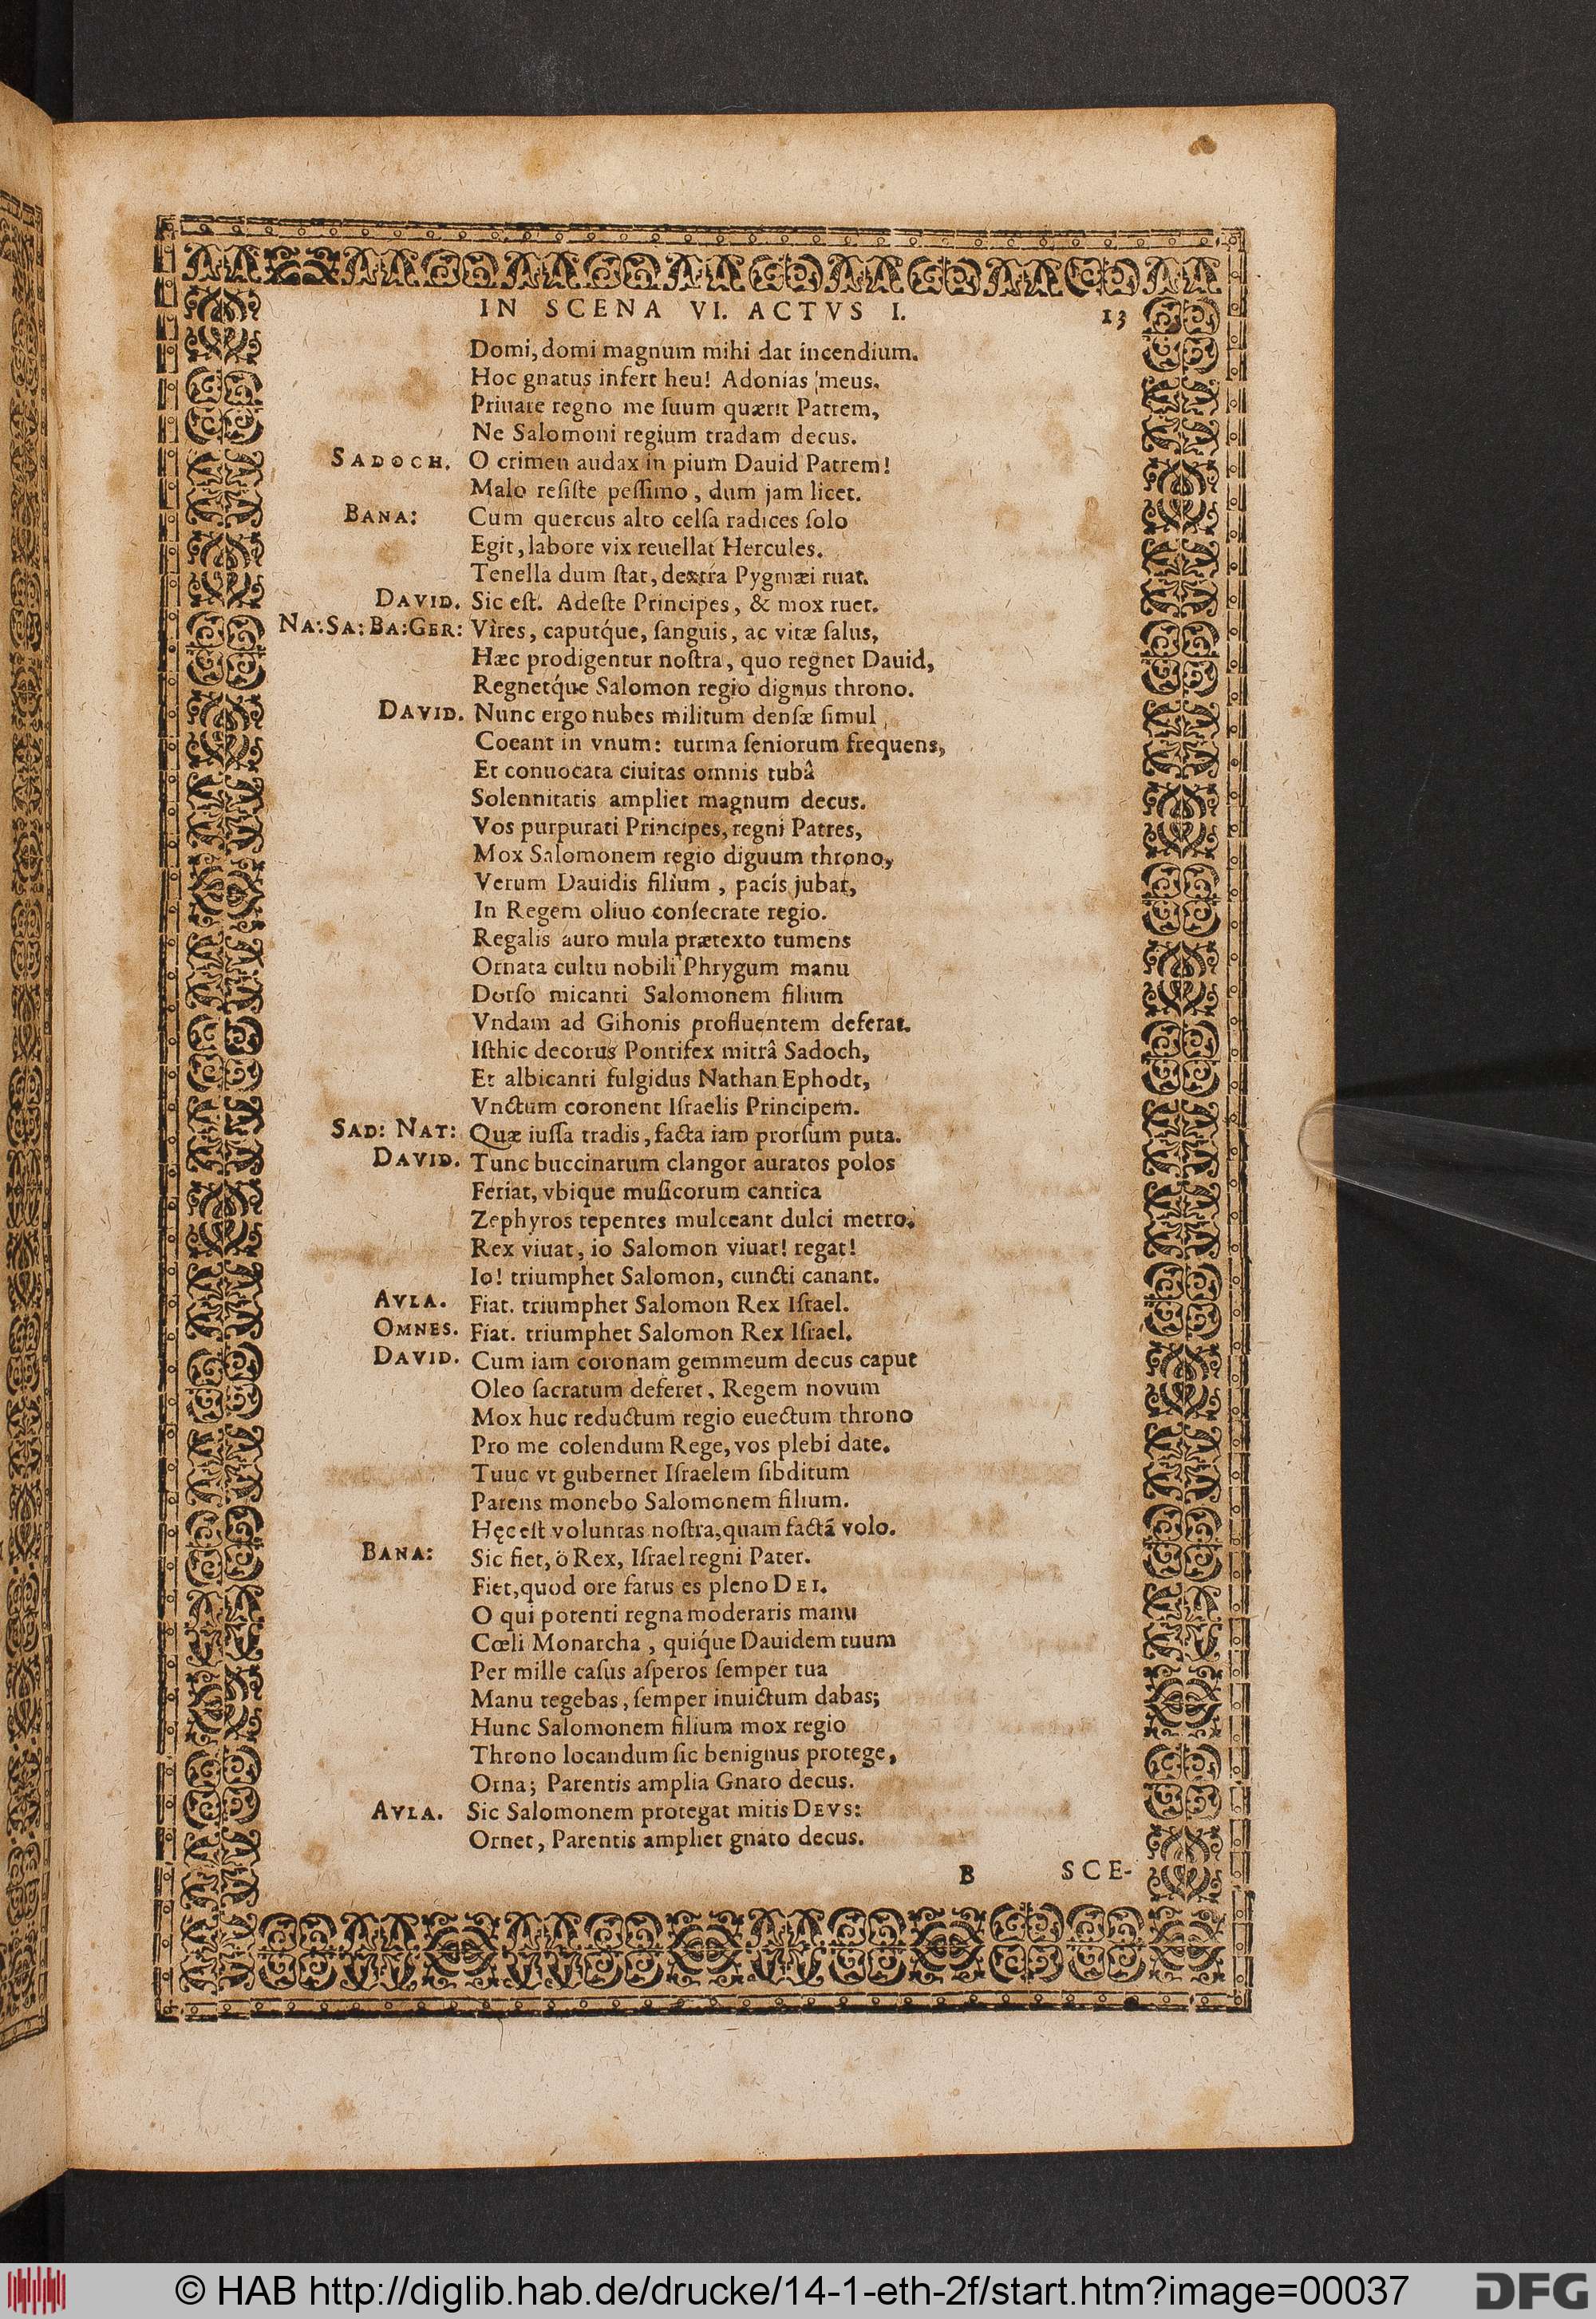 IN SCENA VI. ACTVS I. 13
Domi, domi magnum mihi dat incendium.
Hoc gnatus infert heu! Adonias meus.
Priuare regno me ſuum quærit Patrem,
Ne Salomoni regium tradam decus.
SADOCH. O crimen audax in pium Dauid Patrem!
Malo reſiſte peſſimo, dum jam licet.
BANA: Cum quercus alto celſa radices ſolo
Egit, labore vix reuellat Hercules.
Tenella dum ſtat, dextra Pygmæi ruat.
DAVID. Sic eſt. Adeſte Principes, & mox ruet.
NA: SA: BA: GER: Vires, caputq́ue, ſanguis, ac vitæ ſalus,
Hæc prodigentur noſtra, quo regnet Dauid,
Regnetq́ue Salomon regio dignus throno.
DAVID. Nunc ergo nubes militum denſæ ſimul
Coeant in vnum: turma ſeniorum frequens,
Et conuocata ciuitas omnis tubâ
Solennitatis ampliet magnum decus.
Vos purpurati Principes, regni Patres,
Mox Salomonem regio diguum throno,
Verum Dauidis filium, pacis jubar,
In Regem oliuo conſecrate regio.
Regalis auro mula prætexto tumens
Ornata cultu nobili Phrygum manu
Dorſo micanti Salomonem filium
Vndam ad Gihonis profluentem deferat.
Iſthic decorus Pontifex mitrâ Sadoch,
Et albicanti fulgidus Nathan Ephodt,
Vnctum coronent Iſraelis Principem.
SAD: NAT: Quæ iuſſa tradis, facta iam prorſum puta.
DAVID. Tunc buccinarum clangor auratos polos
Feriat, vbique muſicorum cantica
Zephyros tepentes mulceant dulci metro.
Rex viuat, io Salomon viuat! regat!
Io! triumphet Salomon, cuncti canant.
AVLA. Fiat. triumphet Salomon Rex Iſrael.
OMNES. Fiat. triumphet Salomon Rex Iſrael.
DAVID. Cum iam coronam gemmeum decus caput
Oleo ſacratum deferet, Regem novum
Mox huc reductum regio euectum throno
Pro me colendum Rege, vos plebi date.
Tuuc vt gubernet Iſraelem ſibditum
Parens monebo Salomonem filium.
Hęc eſt voluntas noſtra, quam factã volo.
BANA: Sic fiet, ô Rex, Iſrael regni Pater.
Fiet, quod ore fatus es pleno DEI.
O qui potenti regna moderaris manu
Cœli Monarcha, quiq́ue Dauidem tuum
Per mille caſus aſperos ſemper tua
Manu tegebas, ſemper inuictum dabas;
Hunc Salomonem filium mox regio
Throno locandum ſic benignus protege,
Orna; Parentis amplia Gnato decus.
AVLA. Sic Salomonem protegat mitis DEVS:
Ornet, Parentis ampliet gnato decus.
B SCE-
© HAB http://diglib.hab.de/drucke/14-1-eth-2f/start.htm?image=00037
DFG